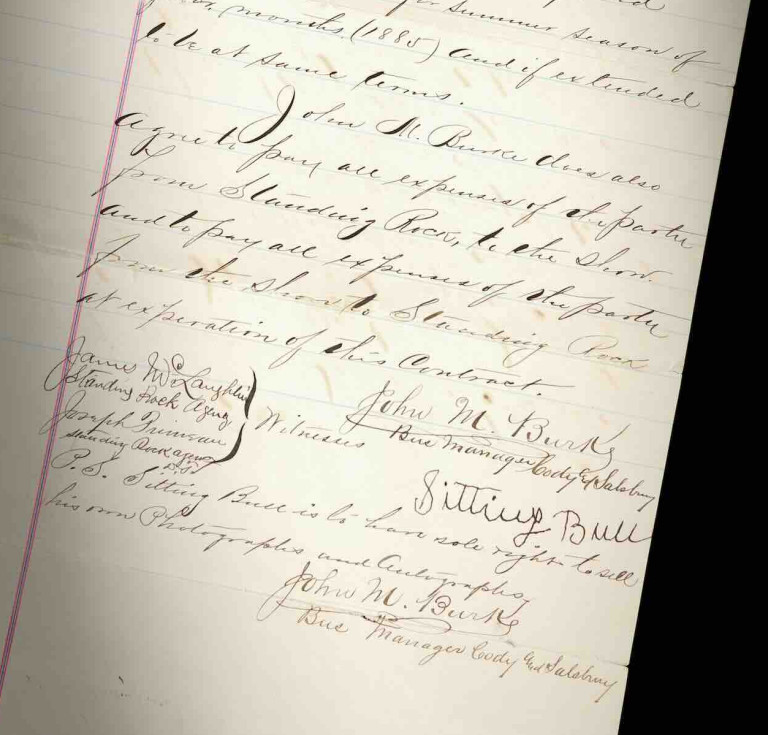 for Summer Season of
months, (1885) and if extended
to be at same terms.
John M. Burke does also
agree to pay all expenses of the party
from Standing Rock, to the Show.
and to pay all expenses of the party
from the Show to Standing Rock
at experation of this Contract.
James McLaughlin
Standing Rock Agency
Joseph Primeau
Standing Rock agency
D.T.
Witnesses
John M. Burke
Bus Manager Cody and Salsbury
Sitting Bull
P.S. Sitting Bull is to have sole right to sell
his own Photographs and Autographs,
John M. Burke
Bus Manager Cody and Salsbury